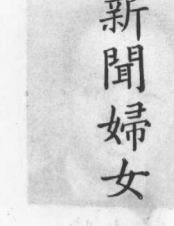 新聞婦女